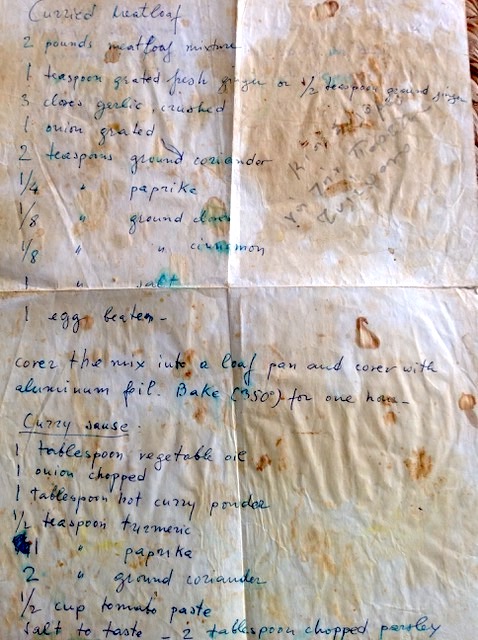 Curried Meatloaf
2 pounds meatloaf mixture
1 teaspoon grated fresh ginger or 1/2 teaspoon ground ginger
3 cloves garlic crushed
1 onion grated
2 teaspoons ground coriander
1/4 " paprika
1/8 " ground cloves
1/8 " " cinnamon
1 " salt
1 egg beaten -
cover the mix into a loaf pan and cover with
aluminum foil. Bake (350°) for one hour -
Curry sause.
1 tablespoon vegetable oil
1 onion chopped
1 tablespoon hot curry powder
1/2 teaspoon turmeric
1 " paprika
2 " ground coriander
1/2 cup tomato paste
salt to taste - 2 tablespoon chopped parsley